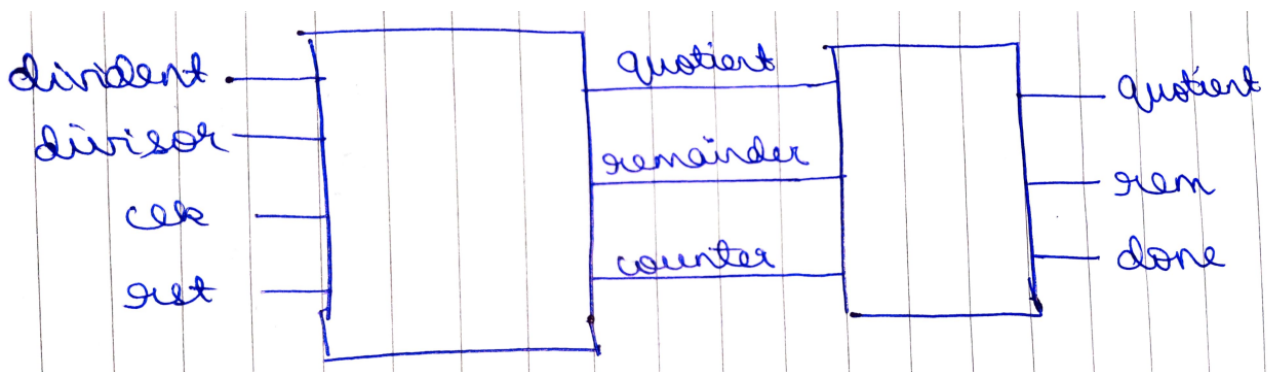 divident
divisor
clk
rst
quotient
remainder
counter
quotient
rem
done